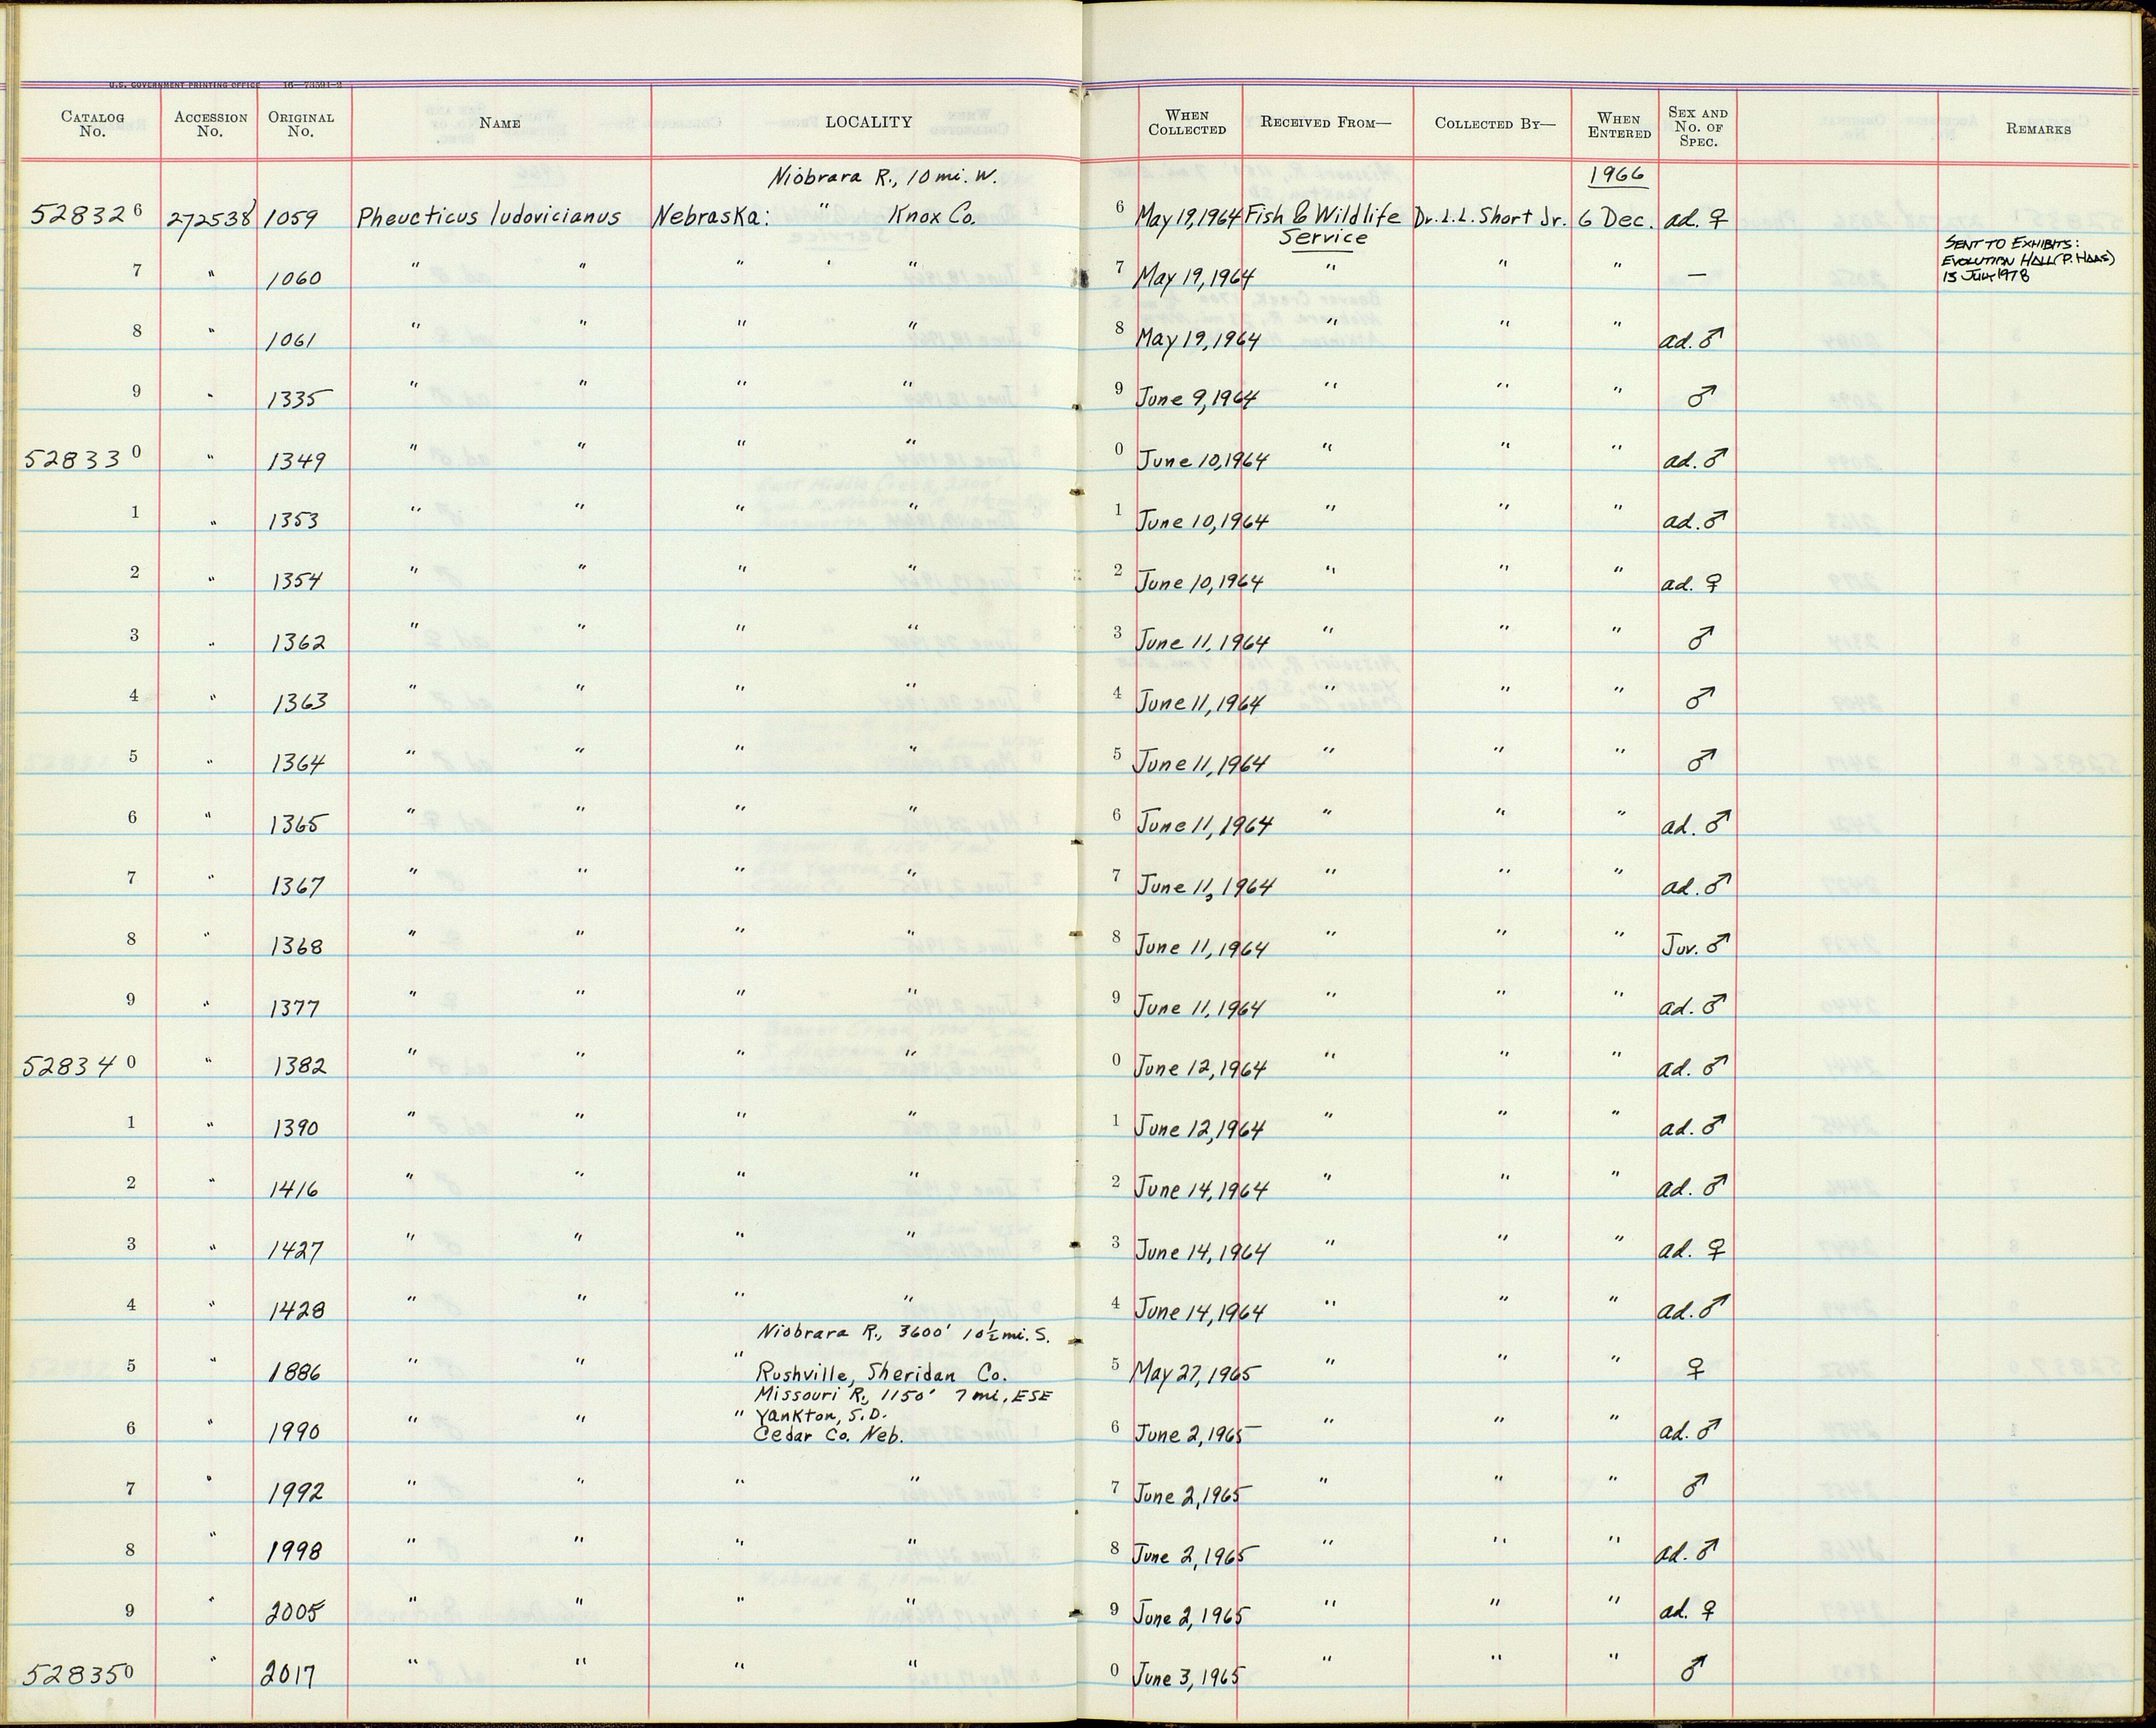 U.S. GOVERNMENT PRINTING OFFICE 16—73391-2
CATALOG No. ACCESSION No. ORIGINAL No. NAME LOCALITY WHEN COLLECTED RECEIVED FROM— COLLECTED BY— WHEN ENTERED SEX AND No. OF SPEC. REMARKS
Niobrara R., 10 mi. W. 1966
528326 272538 1059 Pheucticus ludovicianus Nebraska: " Knox Co. 6 May 19, 1964 Fish & Wildlife Dr. L.L. Short Jr. 6 Dec. ad. ♀
Service
SENT TO EXHIBITS:
EVOLUTION HALL (P. HAAS)
13 JULY 1978
7 " 1060 " " " ' " 7 May 19, 1964 " " " —
8 " 1061 " " " " 8 May 19, 1964 " " " ad. ♂
9 " 1335 " " " " 9 June 9, 1964 " " " ♂
528330 " 1349 " " " " 0 June 10, 1964 " " " ad. ♂
1 " 1353 " " " " 1 June 10, 1964 " " " ad. ♂
2 " 1354 " " " " 2 June 10, 1964 " " " ad. ♀
3 " 1362 " " " " 3 June 11, 1964 " " " ♂
4 " 1363 " " " " 4 June 11, 1964 " " " ♂
5 " 1364 " " " " 5 June 11, 1964 " " " ♂
6 " 1365 " " " " 6 June 11, 1964 " " " ad. ♂
7 " 1367 " " " " 7 June 11, 1964 " " " ad. ♂
8 " 1368 " " " " 8 June 11, 1964 " " " Juv. ♂
9 " 1377 " " " " 9 June 11, 1964 " " " ad. ♂
528340 " 1382 " " " " 0 June 12, 1964 " " " ad. ♂
1 " 1390 " " " " 1 June 12, 1964 " " " ad. ♂
2 " 1416 " " " " 2 June 14, 1964 " " " ad. ♂
3 " 1427 " " " " 3 June 14, 1964 " " " ad. ♀
4 " 1428 " " " " 4 June 14, 1964 " " " ad. ♂
Niobrara R., 3600' 10½ mi. S.
5 " 1886 " " " Rushville, Sheridan Co. 5 May 27, 1965 " " " ♀
Missouri R., 1150' 7 mi. ESE
" Yankton, S.D.
6 " 1990 " " Cedar Co. Neb. 6 June 2, 1965 " " " ad. ♂
7 " 1992 " " " " 7 June 2, 1965 " " " ♂
8 " 1998 " " " " 8 June 2, 1965 " " " ad. ♂
9 " 2005 " " " " 9 June 2, 1965 " " " ad. ♀
528350 " 2017 " " " " 0 June 3, 1965 " " " ♂